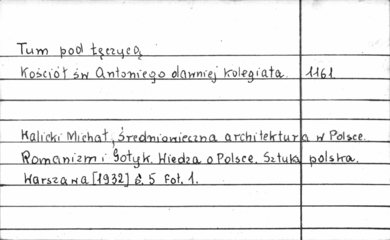 Tum pod Łęczycą
Kościół św Antoniego dawniej kolegiata. 1161
Walicki Michał, Średniowieczna architektura w Polsce.
Romanizm i Gotyk. Wiedza o Polsce. Sztuka polska.
Warszawa [1932] s. 5 Fot. 1.